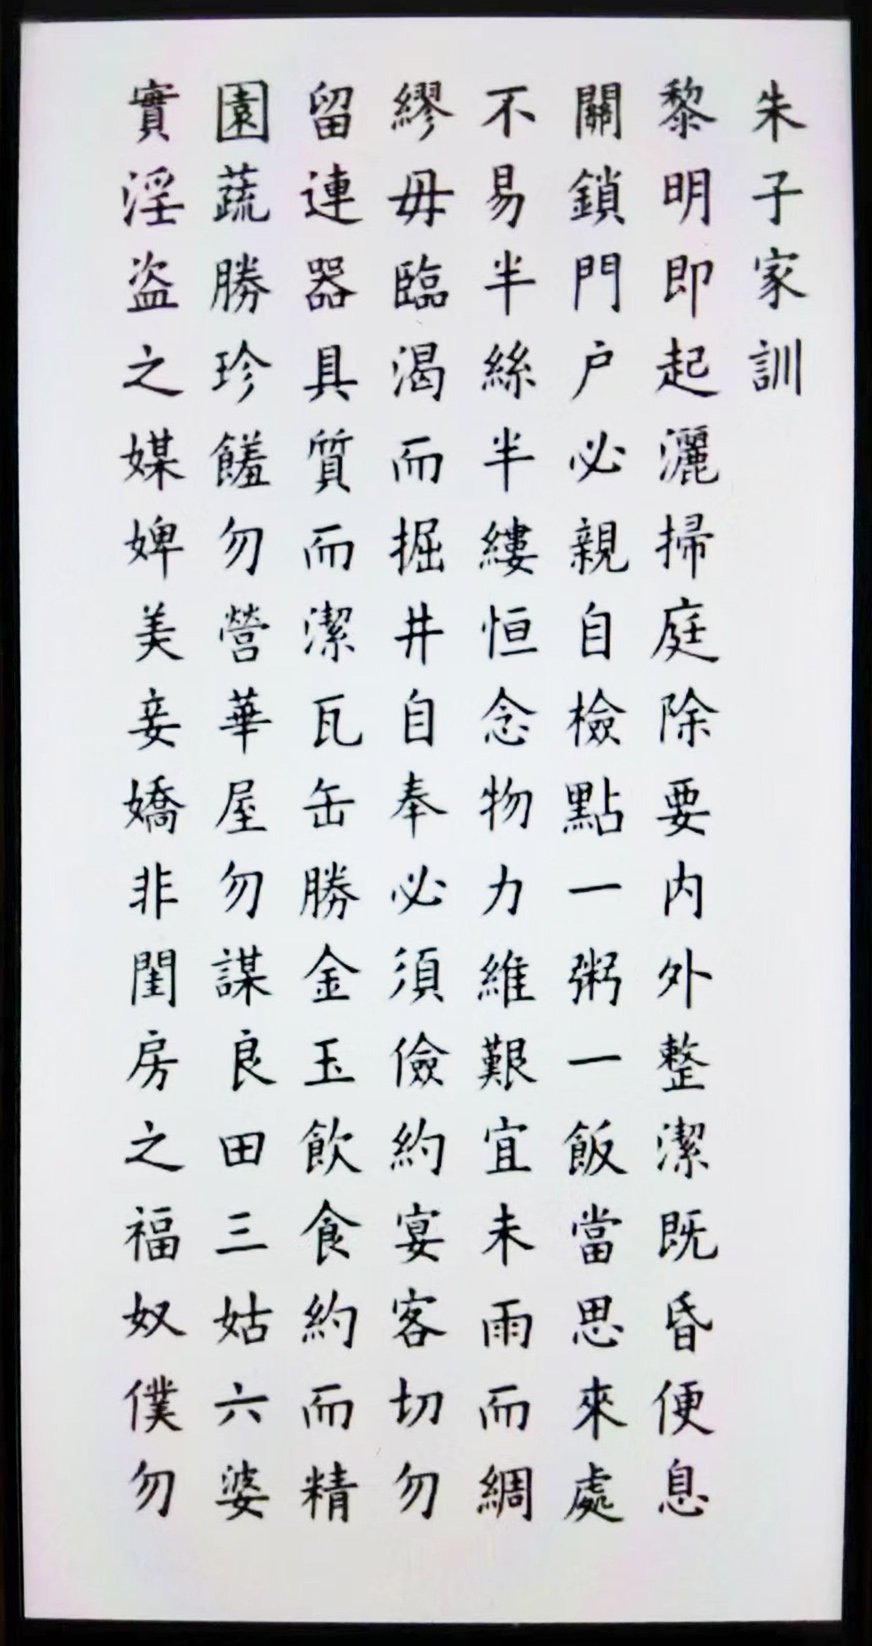 朱子家訓
黎明即起灑掃庭除要内外整潔既昏便息
關鎖門户必親自檢點一粥一飯當思來處
不易半絲半縷恒念物力維艱宜未雨而綢
繆毋臨渴而掘井自奉必須儉約宴客切勿
留連器具質而潔瓦缶勝金玉飲食約而精
園蔬勝珍饈勿營華屋勿謀良田三姑六婆
實淫盗之媒婢美妾嬌非閨房之福奴僕勿